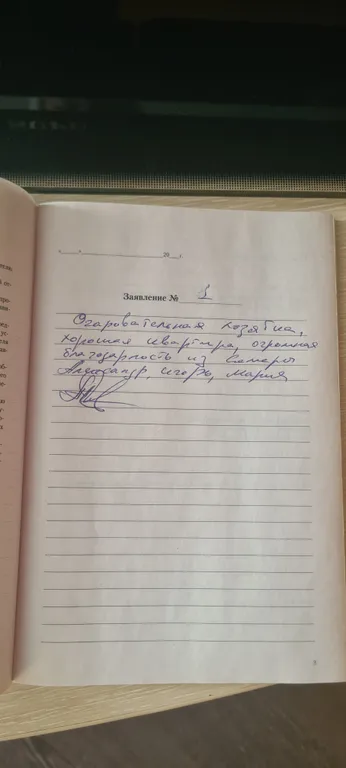 "___"____________20__г.
Заявление № 1
Очаровательная хозяйка,
хорошая квартира, огромная
благодарность из Самары
Александр, Игорь, Мария